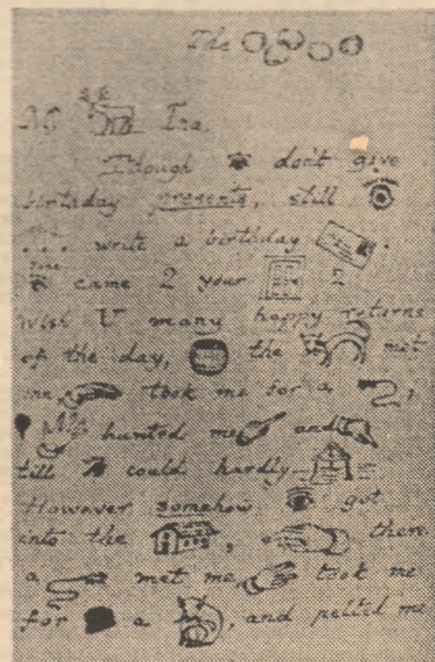 The
My Ina,
Though don't give
birthday presents, still
write a birthday .
came 2 your 2
wish U many happy returns
of the day, the met
me took me for a ,
hunted me and
till could hardly
However somehow got
into the , there
a met me, took me
for a , and pelted me